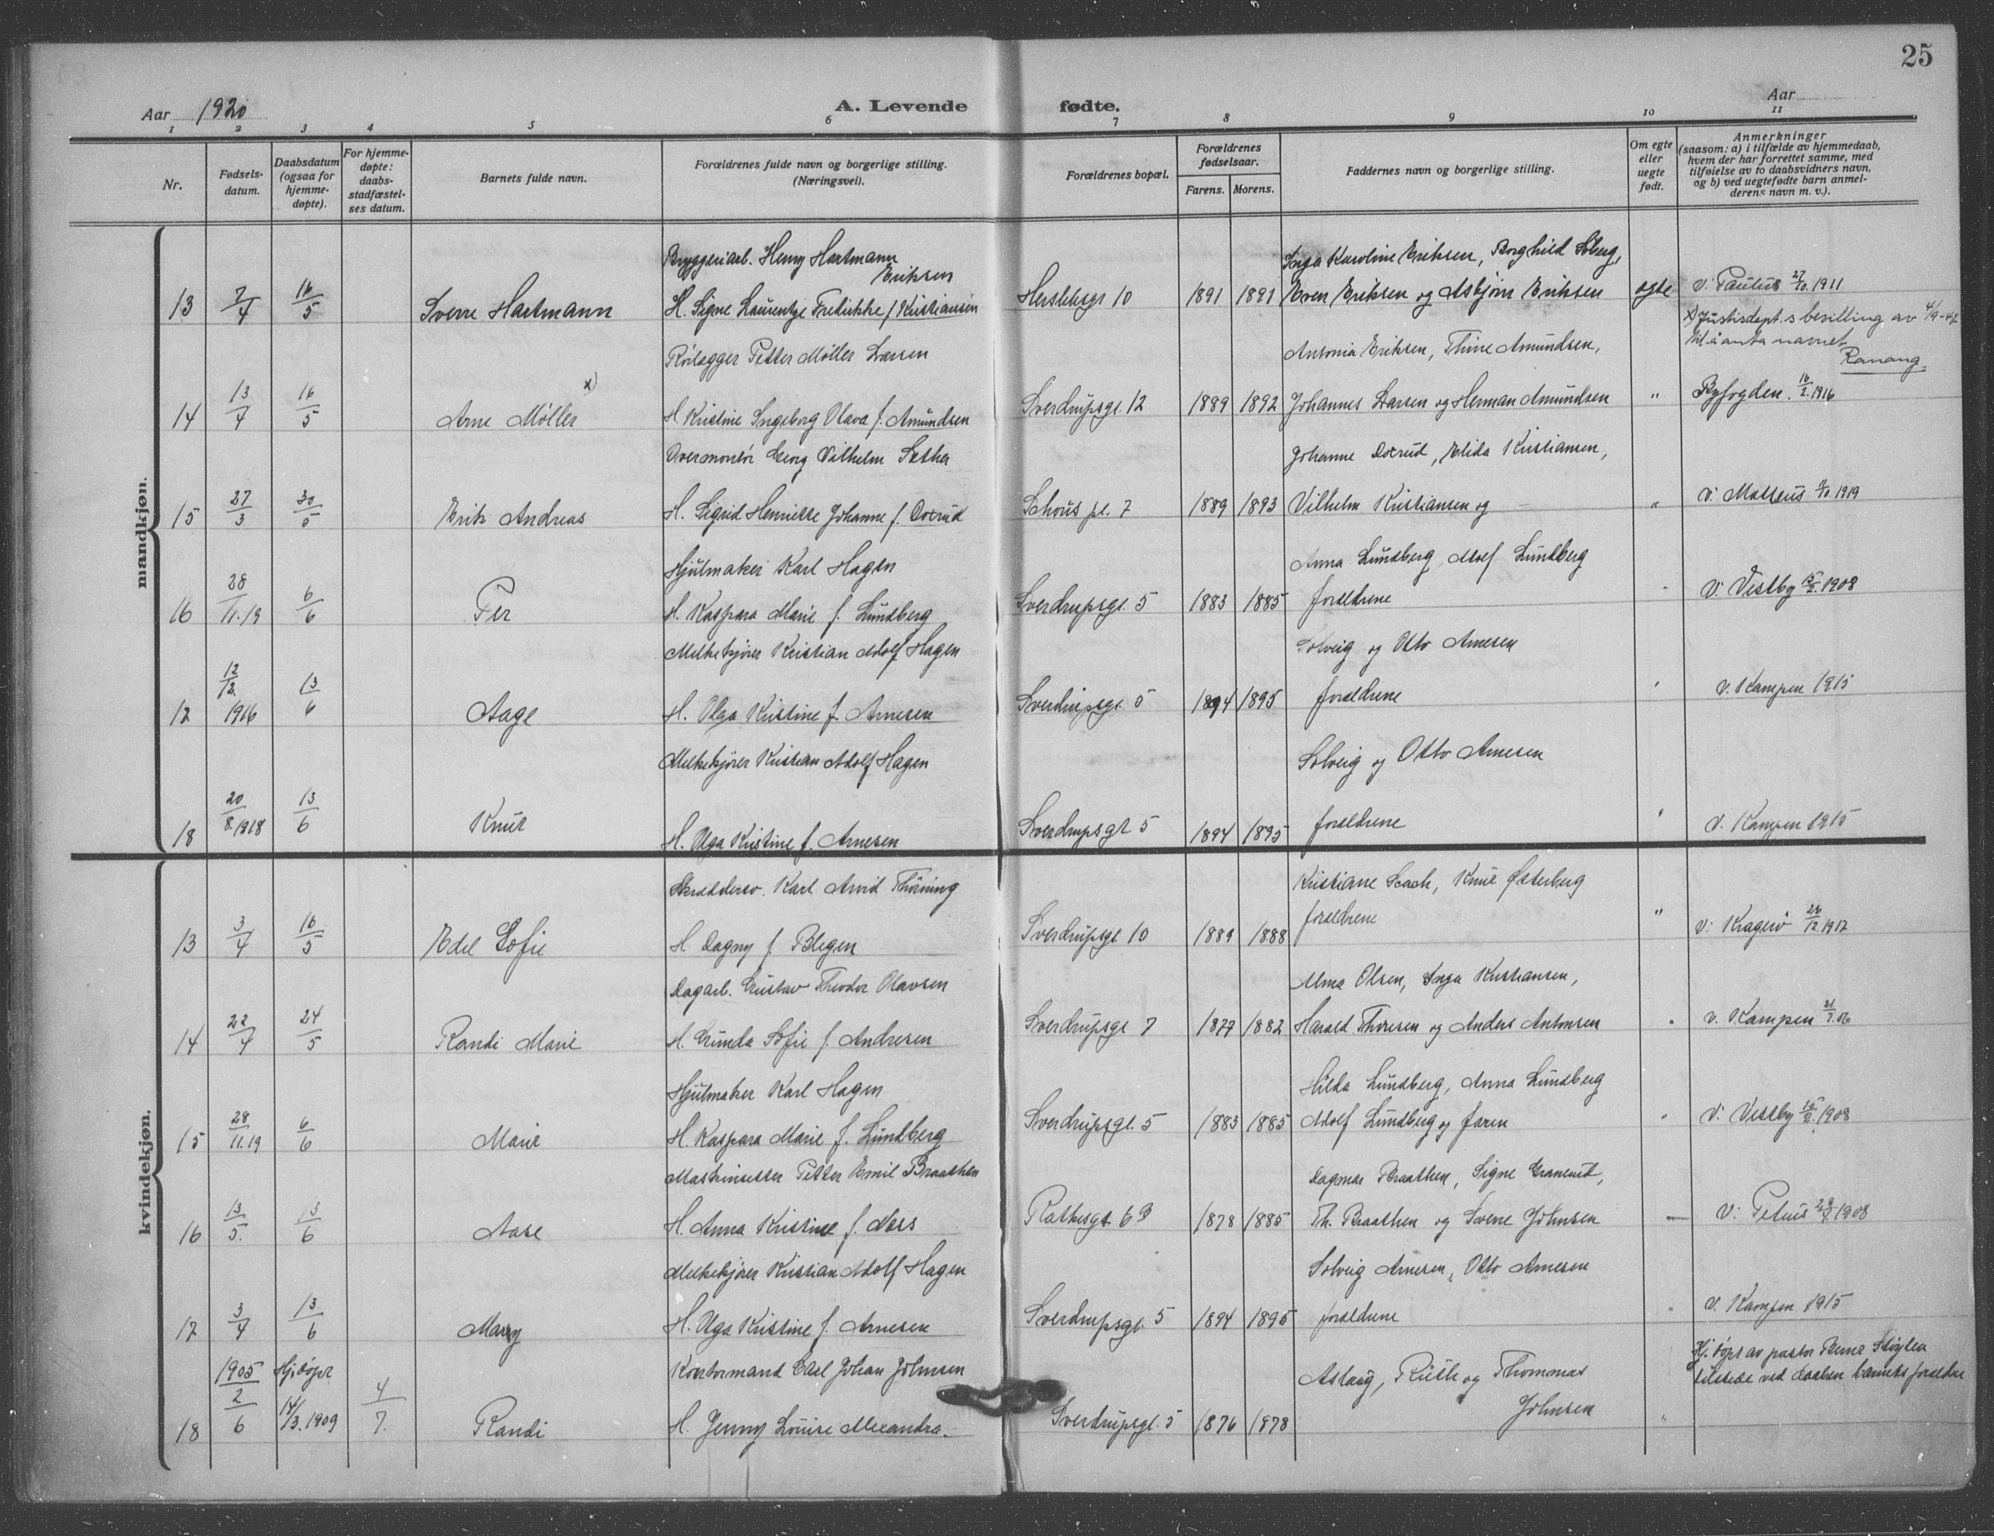 25
Aar 1920 A. Levende fødte. Aar
1 2 3 4 5 6 7 8 9 10 11
Nr.
Fødsels-
datum.
Daabsdatum
(ogsaa for
hjemme-
døpte).
For hjemme-
døpte:
daabs-
stadfæstel-
ses datum.
Barnets fulde navn.
Forældrenes fulde navn og borgerlige stilling.
(Næringsvei).
Forældrenes bopæl.
Forældrenes
fødselsaar.
Farens. Morens.
Faddernes navn og borgerlige stilling.
Om egte
eller
uegte
født.
Anmerkninger
(saasom: a) i tilfælde av hjemmedaab,
hvem der har forrettet samme, med
tilføielse av to daabsvidners navn,
og b) ved uegtefødte barn anmel-
derens navn m. v.).
mandkjøn.
Bryggeriarb. Henry Hartmann Inga Karoline Eriksen, Borghild Soberg,
Eriksen
13 7/4 16/5 Sverre Hartmann H. Signe Laurentze Fredrikke f. Kristiansen Herslebsgt 10 1891 1891 Even Eriksen og Asbjørn Eriksen egte v. Paulus 27/10 1911
x) Justisdept.s bevilling av 4/9-42
til å anta navnet
Ranang.
Rørlegger Petter Møller Larsen Antonia Eriksen, Thine Amundsen,
14 13/4 16/5 Arne Møller x) H. Kristine Ingeborg Olava f. Amundsen Sverdrupsgt 12 1889 1892 Johannes Larsen og Herman Amundsen " Byfogden 16/2 1916
Overmontør Georg Vilhelm Sæther Johanne Docrud, Elida Kristiansen,
15 27/3 30/5 Erik Andreas H. Sigrid Henriette Johanne f. Docrud Schous pl. 7 1889 1893 Vilhelm Kristiansen og — " v. Matteus 1919
Hjulmaker Karl Hagen Anna Lundberg, Adolf Lundberg
16 28/11.19 6/6 Per H. Kaspara Marie f. Lundberg Sverdrupsgt. 5 1883 1885 forældrene " v. Vestby 1908
Melkekjører Kristian Adolf Hagen Solveig og Otto Arnesen
17 12/12. 1916 13/6 Aage H. Olga Kristine f. Arnesen Sverdrupsgt. 5 1894 1895 forældrene " v. Kampen 1915
Melkekjører Kristian Adolf Hagen Solveig og Otto Arnesen
18 20/8.1918 13/6 Knut H. Olga Kristine f. Arnesen Sverdrupsgt 5 1894 1895 forældrene " v. Kampen 1915
kvindekjøn.
Skræddersv. Karl Arvid Thorning Kristiane Scach, Knut Østerberg
13 3/4 16/5 Edel Sofie H. Dagny f. Blegen Sverdrupsgt 10 1889 1888 forældrene " v. Kragerø 26/12 1917
Dagarb. Gustav Theodor Olavsen Alma Olsen, Inga Kristiansen,
14 22/4 24/5 Randi Marie H. Gunda Sofie f. Andresen Sverdrupsgt 7 1877 1882 Harald Thoresen og Anders Antonsen " v. Kampen 31/7.06
Hjulmaker Karl Hagen Hilda Lundberg, Anna Lundberg
15 28/11.19 6/6 Marie H. Kaspara Marie f. Lundberg Sverdrupsgt. 5 1883 1885 Adolf Lundberg og faren " v. Vestby 1908
Maskinsetter Petter Emil Braathen Dagmar Braathen, Signe Granerud,
16 13/5. 13/6 Aase H. Anna Kristine f. Næss Rathesgt 6B 1878 1885 Th. Braathen og Sverre Johnsen — v. Petrus 1908
Melkekjører Kristian Adolf Hagen Solveig Arnesen, Otto Arnesen
17 3/4 13/6 Mary H. Olga Kristine f. Arnesen Sverdrupsgt. 5 1894 1895 forældrene " v. Kampen 1915
1905 Hj.døpt Kontormand Carl Johan Johnsen Aslaug, Ruth og Thommas Hj. døpt av pastor Støylen
tilstede ved daaben barnets forældre
18 2/6 14/3. 1909 4/7. Randi H. Jenny Louise Alexandra. Sverdrupsgt. 5 1876 1878 Johnsen "